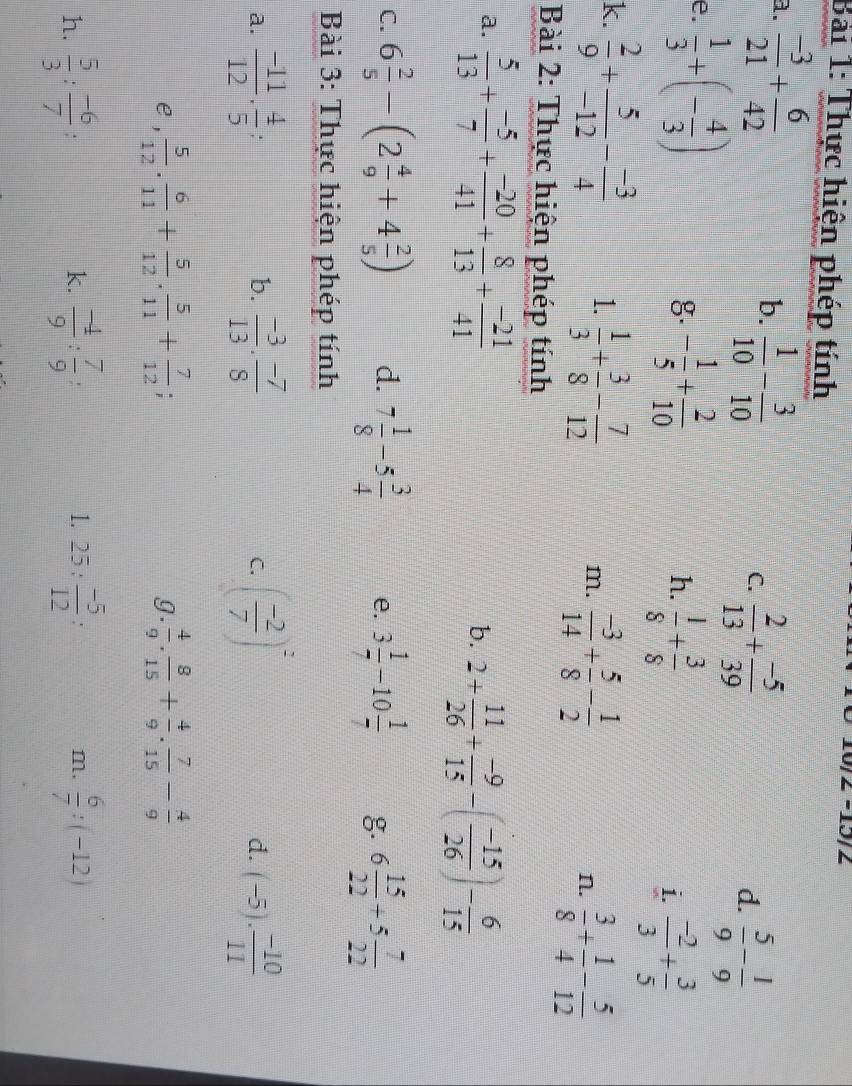 Bài 1: Thực hiện phép tính
a. -3/21 + 6/42 b. 1/10 - 3/10 c. 2/13 + -5/39 d. 5/9 - 1/9
e. 1/3 + (-4/3) g. -1/5 + 2/10 h. 1/8 + 3/8 i. -2/3 + 3/5
k. 2/9 + 5/-12 - -3/4 l. 1/3 + 3/8 - 7/12 m. -3/14 + 5/8 - 1/2 n. 3/8 + 1/4 - 5/12
Bài 2: Thực hiện phép tính
a. 5/13 + -5/7 + -20/41 + 8/13 + -21/41 b. 2 + 11/26 + -9/15 - (-15/26) - 6/15
c. 6 2/5 - (2 4/9 + 4 2/5) d. 7 1/8 - 5 3/4 e. 3 1/7 - 10 1/7 g. 6 15/22 + 5 7/22
Bài 3: Thực hiện phép tính
a. -11/12 . 4/5; b. -3/13 . -7/8 c. (-2/7)² d. (-5) . -10/11
e, 5/12 . 6/11 + 5/12 . 5/11 + 7/12; g. 4/9 . 8/15 + 4/9 . 7/15 - 4/9
h. 5/3 : -6/7; k. -4/9 : 7/9; l. 25 : -5/12; m. 6/7 : (-12)